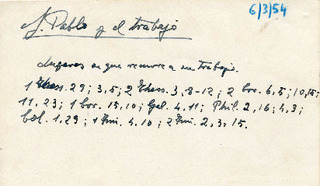 6/3/54
S. Pablo y el trabajo
Lugares en que recurre a su trabajo.
1 Thess. 2 9 ; 3, 5 ; 2 Thess. 3, 8-12 ; 2 Cor. 6, 5 ; 10, 15 ;
11, 23 ; 1 Cor. 15, 10 ; Gal. 4, 11 ; Phil. 2, 16 ; 4, 3 ;
Col. 1, 29 ; 1 Tim. 4, 10 ; 2 Tim. 2, 3, 15.